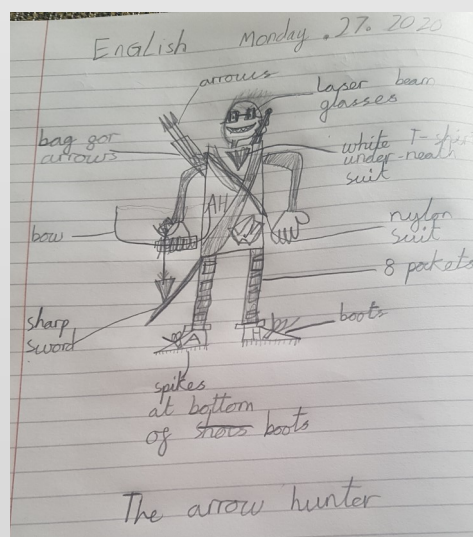 English Monday .27. 2020
arrows
laser beam
glasses
bag gor
arrows
white T-shirt
under-neath
suit
AH
bow
nylon
suit
8 pockets
sharp
sword
boots
A H
spikes
at bottom
of shoes boots
The arrow hunter